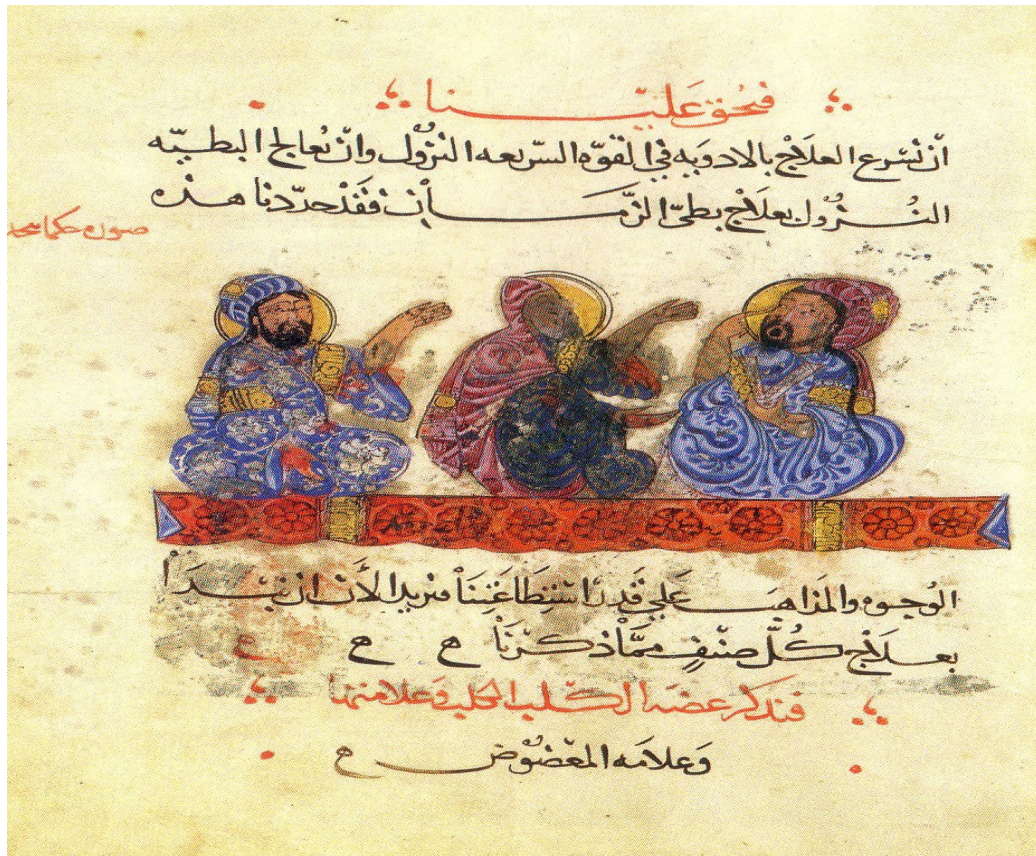 فحق علينا
ان نسرع العلاج بالادويه في القوه السريعه النزول وان نعالج البطيه
النزول بعلاج بطئ الزمان فقد حددنا هذه
صوره حكما
الوجوه والمذاهب علي قدر استطاعتنا فنريد الأن ان نبدا
بعلاج كل صنف مما ذكرنا
فنذكر عضه الكلب الكلب وعلامتها
وعلامه المعضوض